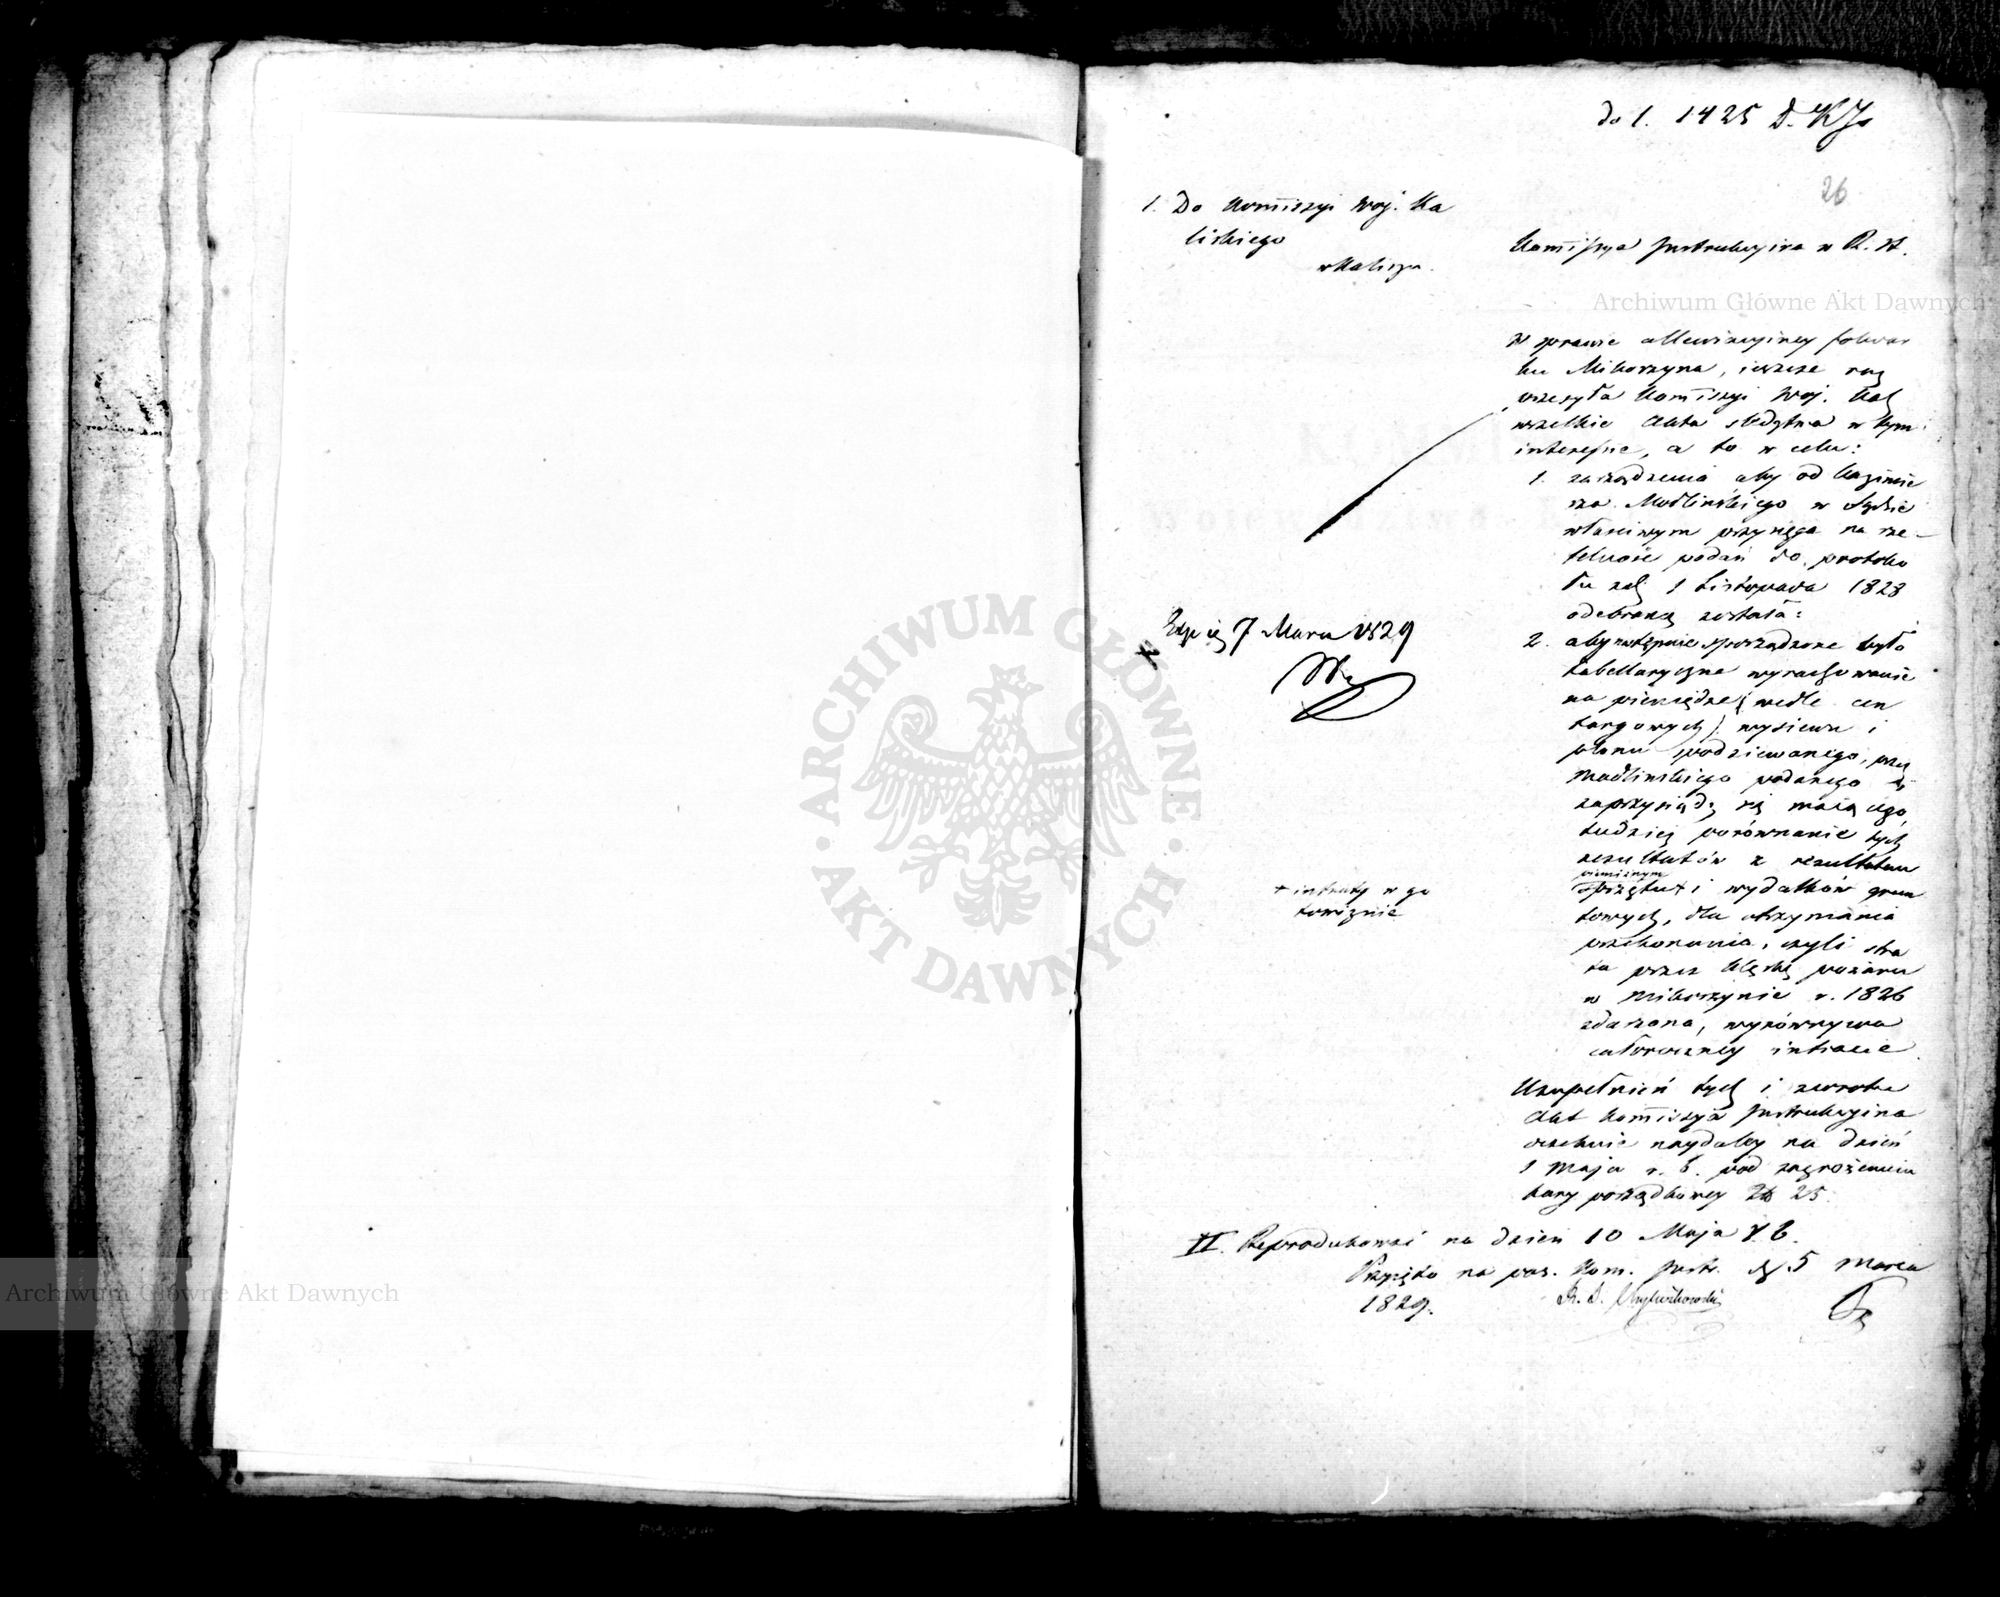 do l. 1425 D. K
26
1. Do Kommissyi Woj. Ka
liskiego
w Kaliszu.
Kommissya Instrukcyina w K. R.
W sprawie allewiacyiney folwar
ku Mikorzyna, ieszcze raz
przesyła Kommissyi Woj. Kal
wszelkie Akta śledztwa w tym
interessie, a to w celu:
1. zarządzenia aby od Kazimie
rza Modlińskiego w Sądzie
właściwym przysięga na rze-
telność podań do protoko
łu z d. 1 Listopada 1828
odebraną została:
2. aby następnie sporządzone było
tabellaryczne wyrachowanie
na pieniądze (wedle cen
targowych) wysiewu i
plonu spodziewanego, przez
Modlińskiego podanego i
zaprzysiądz się maiącego,
tudzież porównanie tych
rezultatów z rezultatem
pieniężnym
sprzętu + i wydatków grun
towych, dla otrzymania
przekonania, czyli stra
ta przez klęskę pożaru
w Mikorzynie r. 1826
zdarzona, wyrównywa
całoroczney intracie
Uzupełnień tych i zwrotu
Akt Kommissya Instrukcyina
oczekuie naydaley na dzień
1 Maja r. b. pod zagrożeniem
kary porządkowey Zł 25.
Exp. 7 Marca 1829
+ intraty w go
towiznie
II. Reprodukować na dzień 10 Maja r. b.
Przyięto na pos. Kom. Instr. d. 5 Marca
1829.
Archiwum Główne Akt Dawnych
Archiwum Główne Akt Dawnych
ARCHIWUM GŁÓWNE · AKT DAWNYCH ·